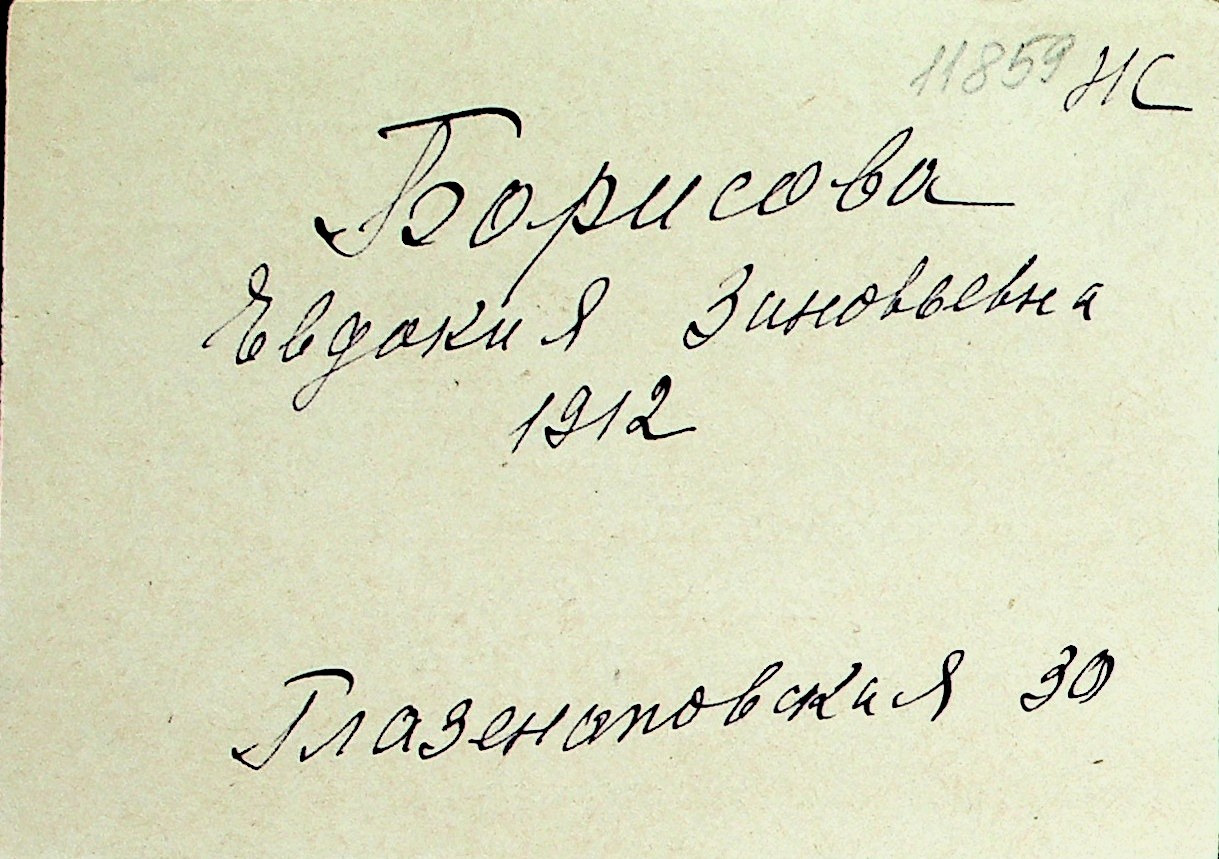 11859 НС
Борисова
Евдокия Зиновьевна
1912
Глазенаповская 30